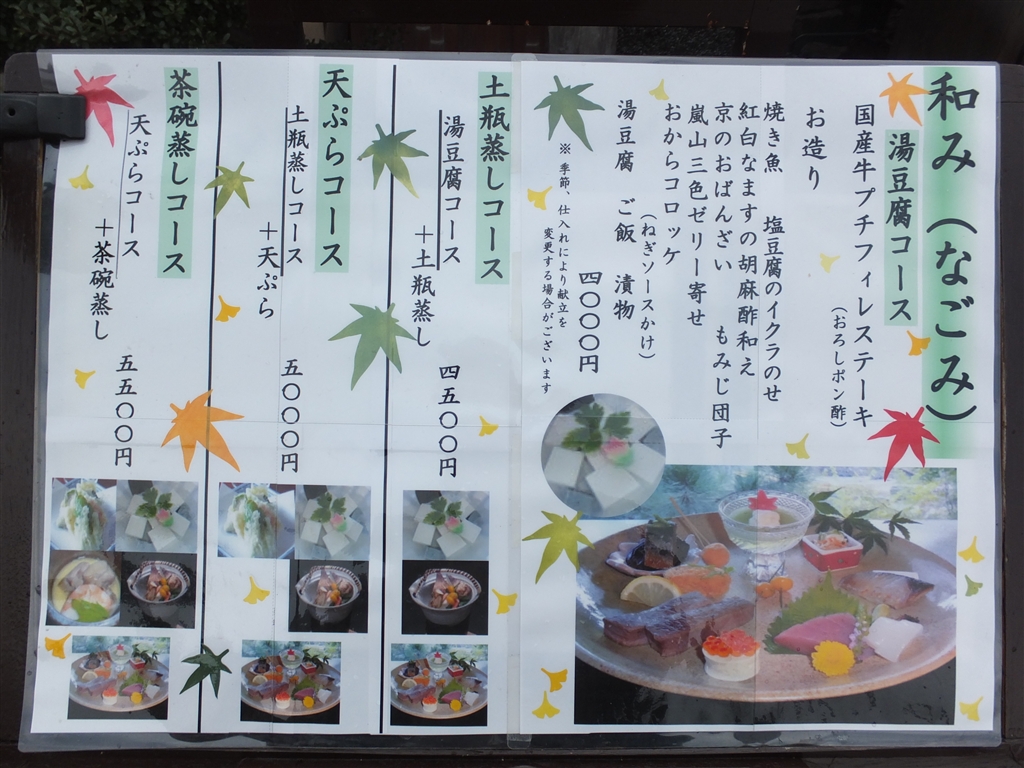 和み（なごみ）
湯豆腐コース
国産牛プチフィレステーキ
（おろしポン酢）
お造り
焼き魚　塩豆腐のイクラのせ
紅白なますの胡麻酢和え
京のおばんざい　もみじ団子
嵐山三色ゼリー寄せ
おからコロッケ
（ねぎソースかけ）
湯豆腐　ご飯　漬物
四〇〇〇円
※季節、仕入れにより献立を
変更する場合がございます
土瓶蒸しコース
湯豆腐コース
＋土瓶蒸し
四五〇〇円
天ぷらコース
土瓶蒸しコース
＋天ぷら
五〇〇〇円
茶碗蒸しコース
天ぷらコース
＋茶碗蒸し
五五〇〇円